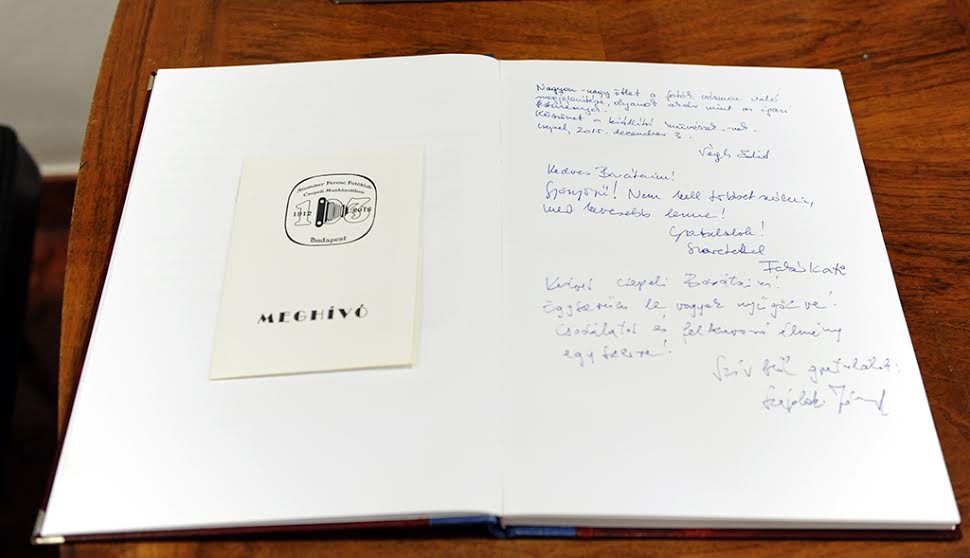 Stemmer Ferenc Fotóklub
Csepeli Munkásotthon
1912 103 2015
Budapest
MEGHÍVÓ
Nagyon-nagy ötlet a fotók vásznon való
megjelenítése, olyanok akár mint az igazi
festmények.
Köszönet a kiállító művészek-nek.
Csepel, 2015. december
Végh
Kedves Barátaim!
Gyönyörű! Nem kell többet szólni,
mert kevesebb lenne!
Gratulálok!
Szeretettel
Kedves csepeli Barátaim!
Egyszerűen le vagyok nyűgözve!
Csodálatos és felkavaró élmény
egyszerre!
Szívből gratulálok: